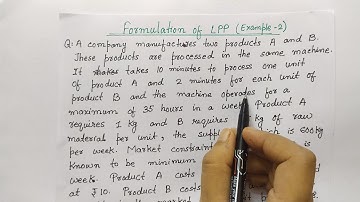 Formulation of LPP (Example-2)
Q: A company manufactures two products A and B.
These products are processed in the same machine.
It takes 10 minutes to process one unit
of product A and 2 minutes for each unit of
product B and the machine operates for a
maximum of 35 hours in a week. Product A
requires 1 kg and B requires kg of raw
material per unit, the supply which is 600 kg
per week. Market constraint is
known to be minimum
week. Product A costs
at ₹10. Product B costs